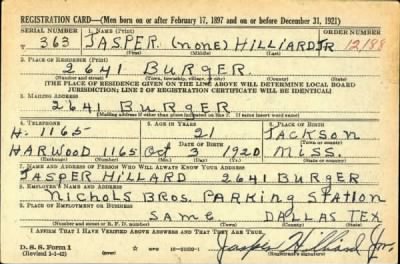 REGISTRATION CARD—(Men born on or after February 17, 1897 and on or before December 31, 1921)
SERIAL NUMBER 1. NAME (Print) ORDER NUMBER
V 363 JASPER (none) HILLIARD JR 12188
(First) (Middle) (Last)
2. PLACE OF RESIDENCE (Print)
2641 BURGER
(Number and street) (Town, township, village, or city) (County) (State)
[THE PLACE OF RESIDENCE GIVEN ON THE LINE ABOVE WILL DETERMINE LOCAL BOARD
JURISDICTION; LINE 2 OF REGISTRATION CERTIFICATE WILL BE IDENTICAL]
3. MAILING ADDRESS
2641 BURGER
[Mailing address if other than place indicated on line 2. If same insert word same]
4. TELEPHONE 5. AGE IN YEARS 6. PLACE OF BIRTH
H. 1165 21 JACKSON
DATE OF BIRTH (Town or county)
HARWOOD 1165 Oct 3 1920 MISS.
(Exchange) (Number) (Mo.) (Day) (Yr.) (State or country)
7. NAME AND ADDRESS OF PERSON WHO WILL ALWAYS KNOW YOUR ADDRESS
JASPER HILLARD 2641 BURGER
8. EMPLOYER'S NAME AND ADDRESS
NICHOLS BROS. PARKING STATION
9. PLACE OF EMPLOYMENT OR BUSINESS
SAME DALLAS TEX
(Number and street or R. F. D. number) (Town) (County) (State)
I AFFIRM THAT I HAVE VERIFIED ABOVE ANSWERS AND THAT THEY ARE TRUE.
D. S. S. Form 1
(Revised 1-1-42) (over)
Jasper Hilliard Jr.